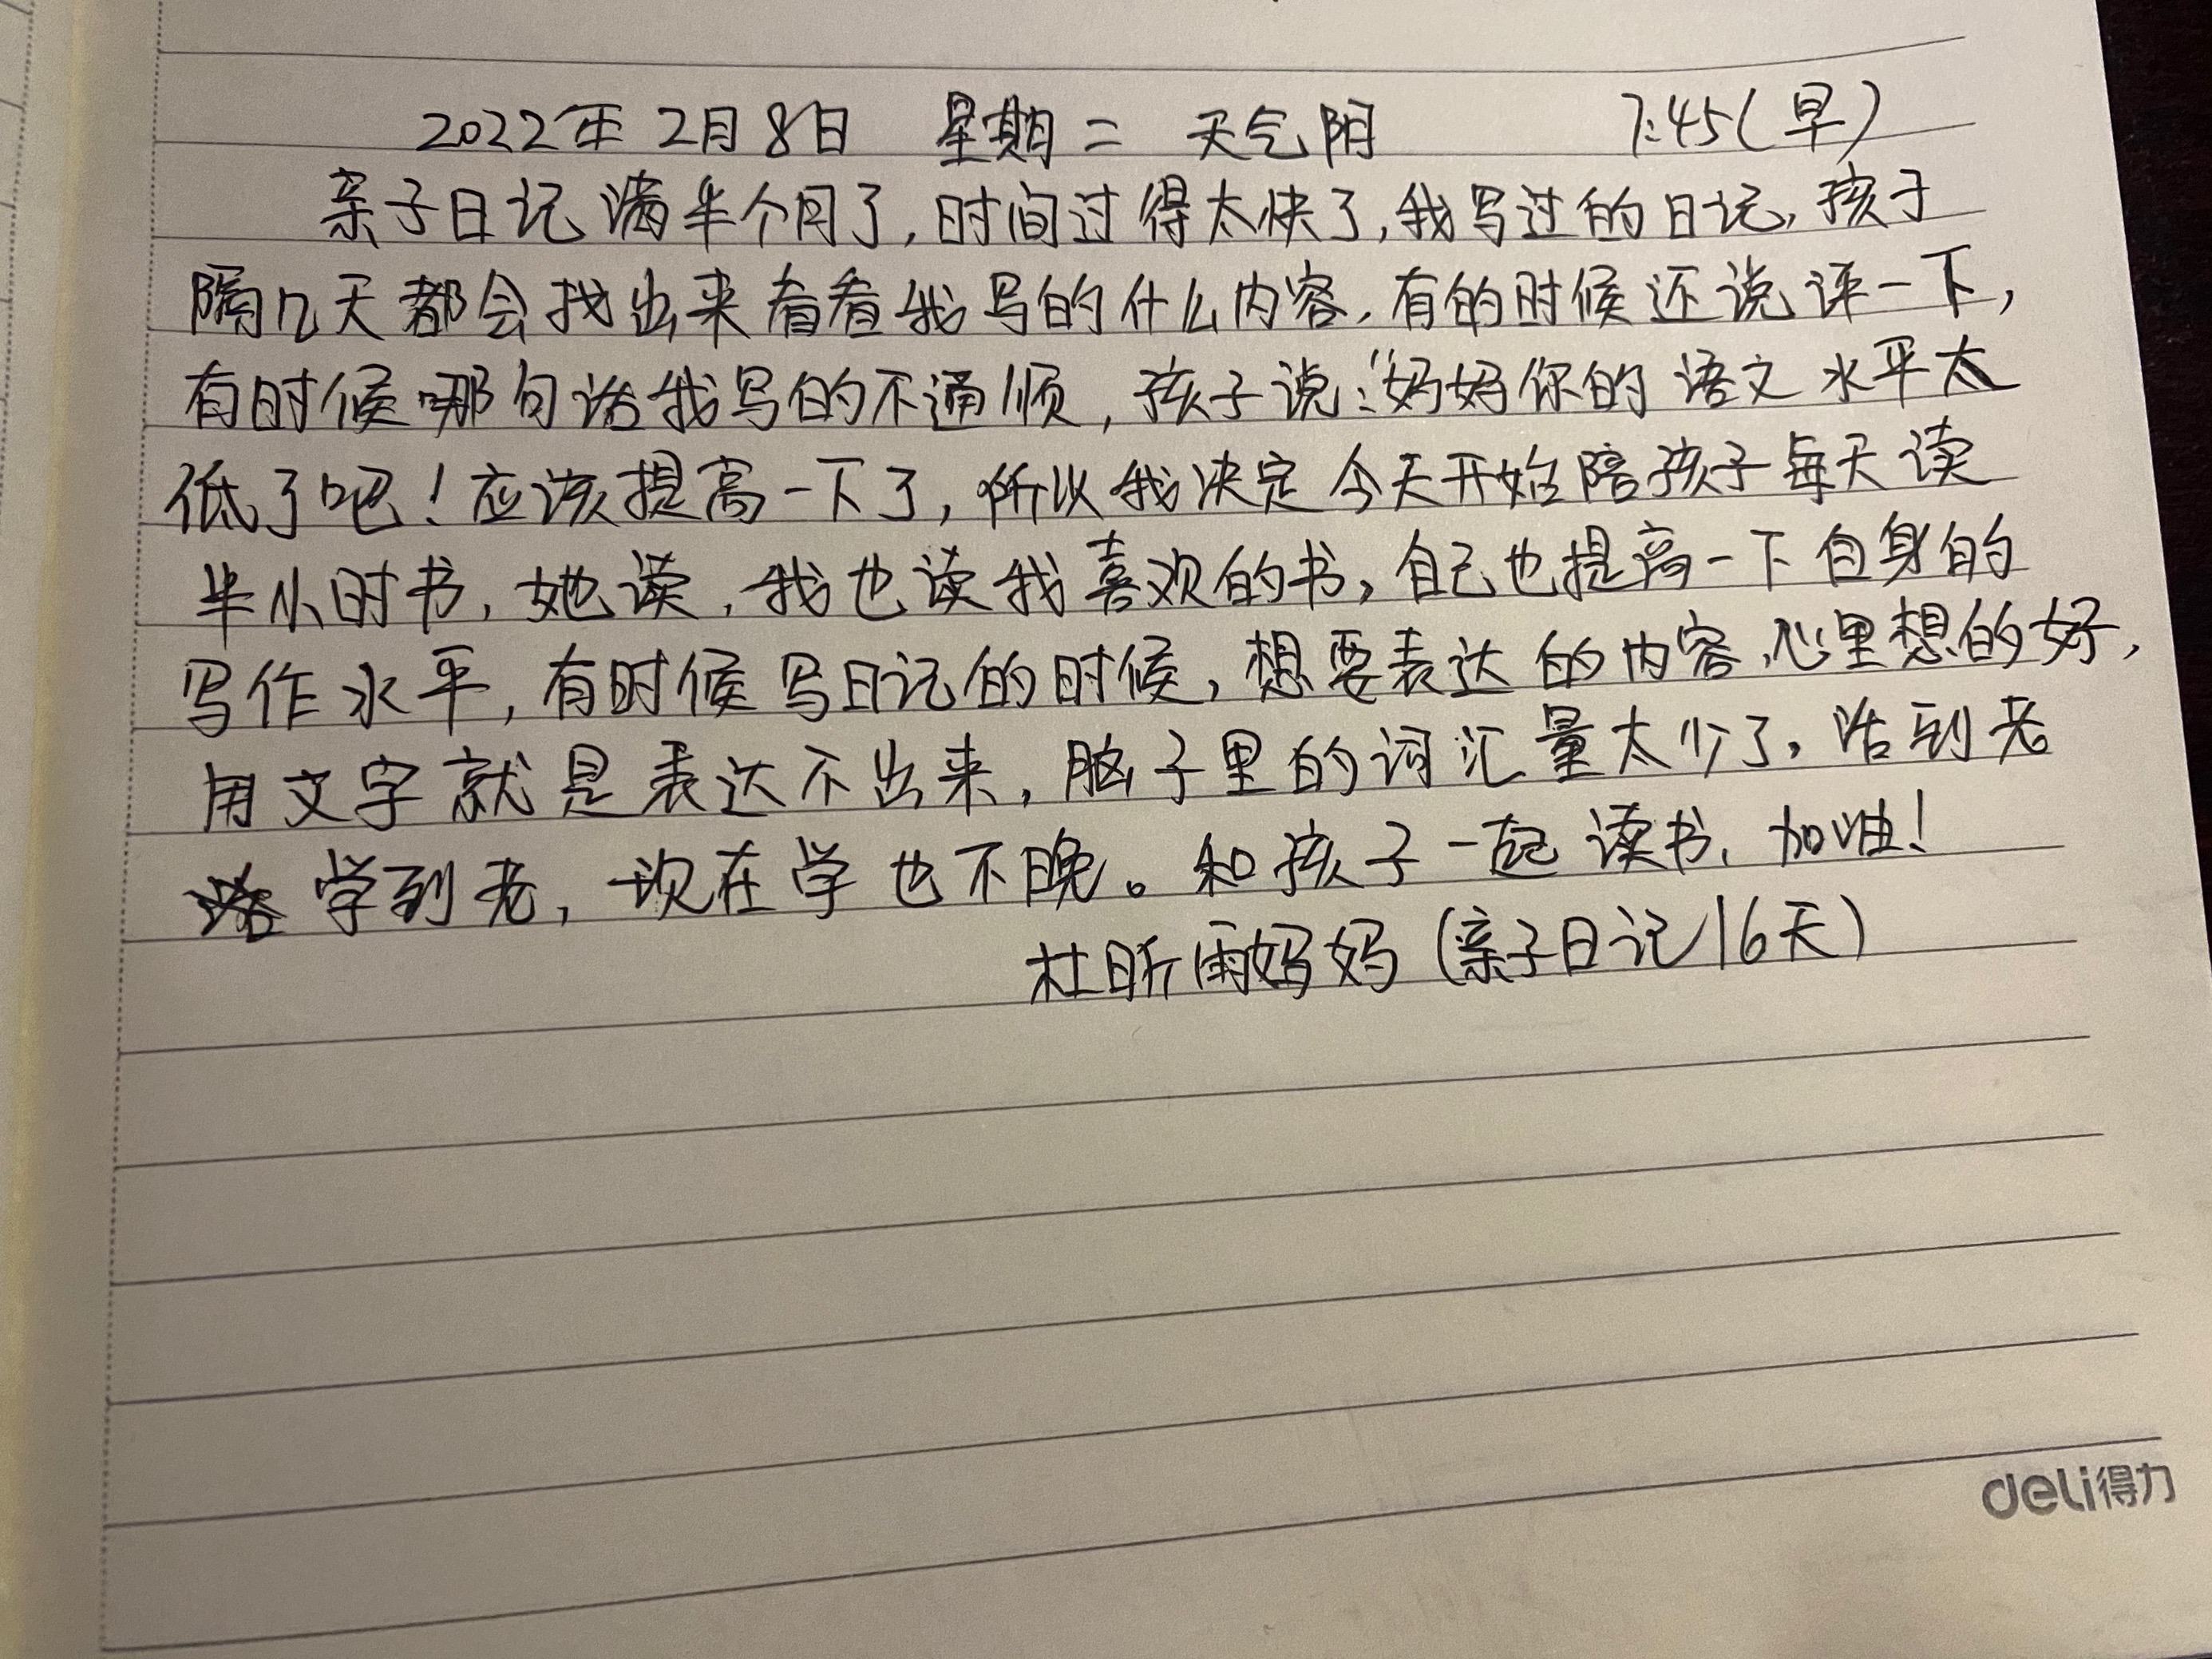 2022年2月8日 星期二 天气阴 7:45(早)
亲子日记满半个月了,时间过得太快了,我写过的日记,孩子
隔几天都会找出来看看我写的什么内容,有的时候还说评一下,
有时候哪句话我写的不通顺,孩子说:“妈妈你的语文水平太
低了吧!应该提高一下了,所以我决定今天开始陪孩子每天读
半小时书,她读,我也读我喜欢的书,自己也提高一下自身的
写作水平,有时候写日记的时候,想要表达的内容,心里想的好,
用文字就是表达不出来,脑子里的词汇量太少了,活到老
学到老,现在学也不晚。和孩子一起读书,加油!
杜昕雨妈妈(亲子日记16天)
deli得力